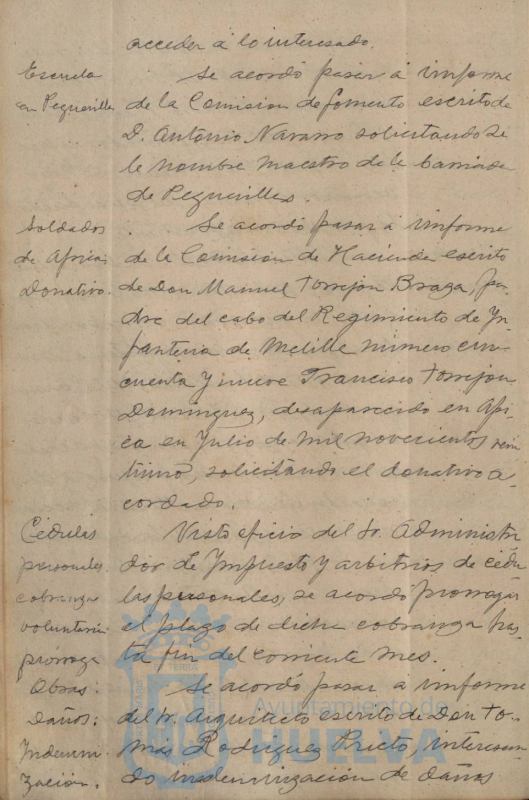 acceder á lo interesado.
Escuela
en Peguerillas
Se acordó pasar á informe
de la Comision de fomento escrito de
D. Antonio Navarro solicitando se
le nombre maestro de la barriada
de Peguerillas.
Soldados
de Africa.
Donativo.
Se acordó pasar á informe
de la Comision de Hacienda escrito
de Don Manuel Torrejon Braza, pa-
dre del cabo del Regimiento de Yn-
fanteria de Melilla número cin-
cuenta y nueve Francisco Torrejon
Dominguez, desaparecido en Afri-
ca en Julio de mil novecientos vein
tiuno, solicitando el donativo a-
cordado.
Cédulas
personales
cobranza
voluntaria
prórroga
Visto oficio del Sr. Administra
dor de Ympuesto y arbitrios de cédu
las personales, se acordó prorrogar
el plazo de dicha cobranza has-
ta fin del corriente mes.
Obras.
Daños.
Yndemni
zación.
Se acordó pasar á informe
del Sr. Arquitecto escrito de Don To-
mas Rodriguez Prieto, interesan
do indemnización de daños
Ayuntamiento de
HUELVA